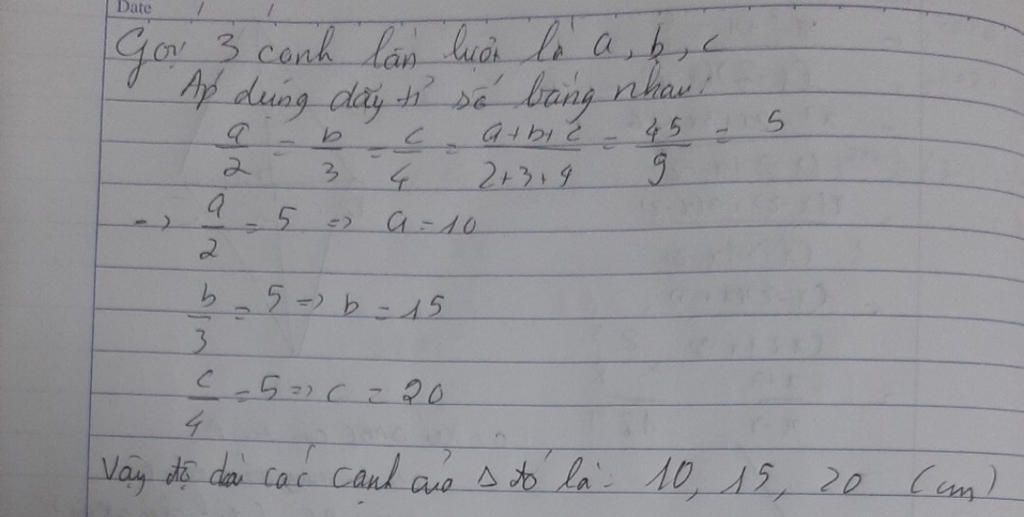 Date / /
Gọi 3 cạnh lần lượt là a, b, c
Áp dụng dãy tỉ số bằng nhau:
a/2 = b/3 = c/4 = a+b+c/2+3+4 = 45/9 = 5
=> a/2 = 5 => a = 10
b/3 = 5 => b = 15
c/4 = 5 => c = 20
Vậy độ dài các cạnh của Δ đó là: 10, 15, 20 (cm)